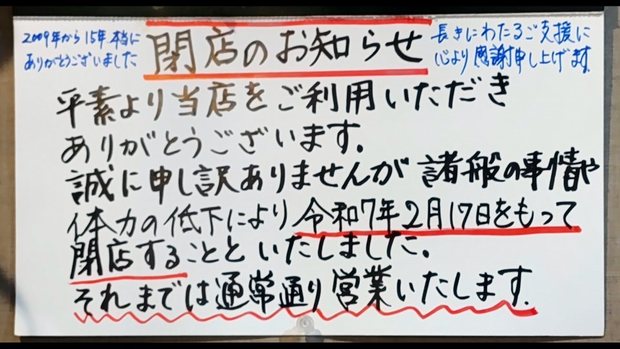 2009年から15年本当に
ありがとうございました
閉店のお知らせ
長きにわたるご支援に
心より感謝申し上げます
平素より当店をご利用いただき
ありがとうございます。
誠に申し訳ありませんが諸般の事情や
体力の低下により令和7年2月17日をもって
閉店することといたしました。
それまでは通常通り営業いたします.